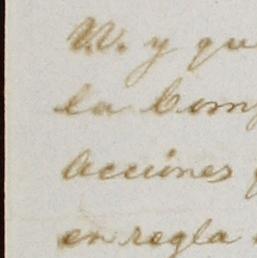 VV. y qu
la Com
acciones
en regla